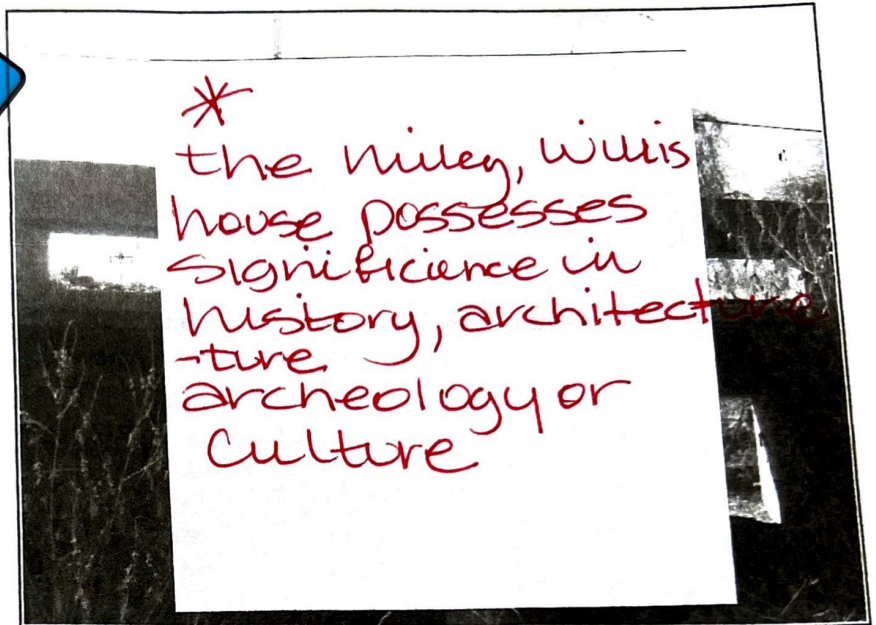 *
the Willis
house possesses
significiance in
history, architecture
-ture
archeology or
culture